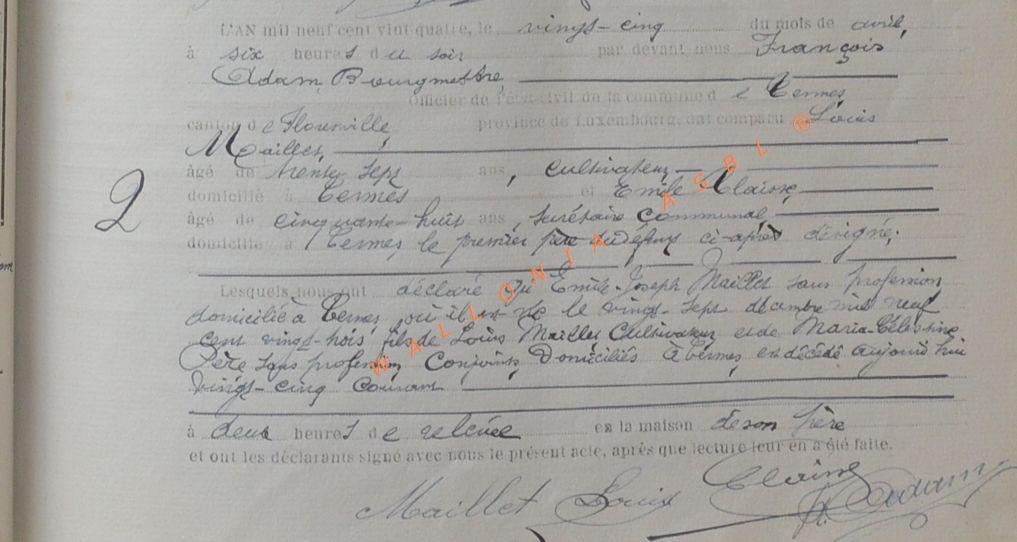 L'AN mil neuf cent vint-quatre, le vingt-cinq du mois de avril,
à six heures du soir par devant nous François
Adam, Bourgmestre,
officier de l'état-civil de la commune de Termes,
canton de Florenville, province de Luxembourg, ont comparu Louis
Maillet,
âgé de trente sept ans, cultivateur
domicilié à Termes et Emile Claisse,
2
âgé de cinquante-huit ans, secrétaire communal,
domicilié à Termes le premier père du défunt ci-après désigné;
Lesquels nous ont déclaré qu'Emile-Joseph Maillet sans profession
domicilié à Termes, où il est né le vingt-sept décembre mil neuf
cent vingt-trois fils de Louis Maillet Cultivateur et de Maria-Célestine
sans profession Conjoints Domiciliés à Termes, est décédé aujourd'hui
vingt-cinq courant
à deux heures de relevée en la maison de son père
et ont les déclarants signé avec nous le présent acte, après que lecture leur en a été faite.
Maillet Louis
Adam
WALLONIA ASBL ©